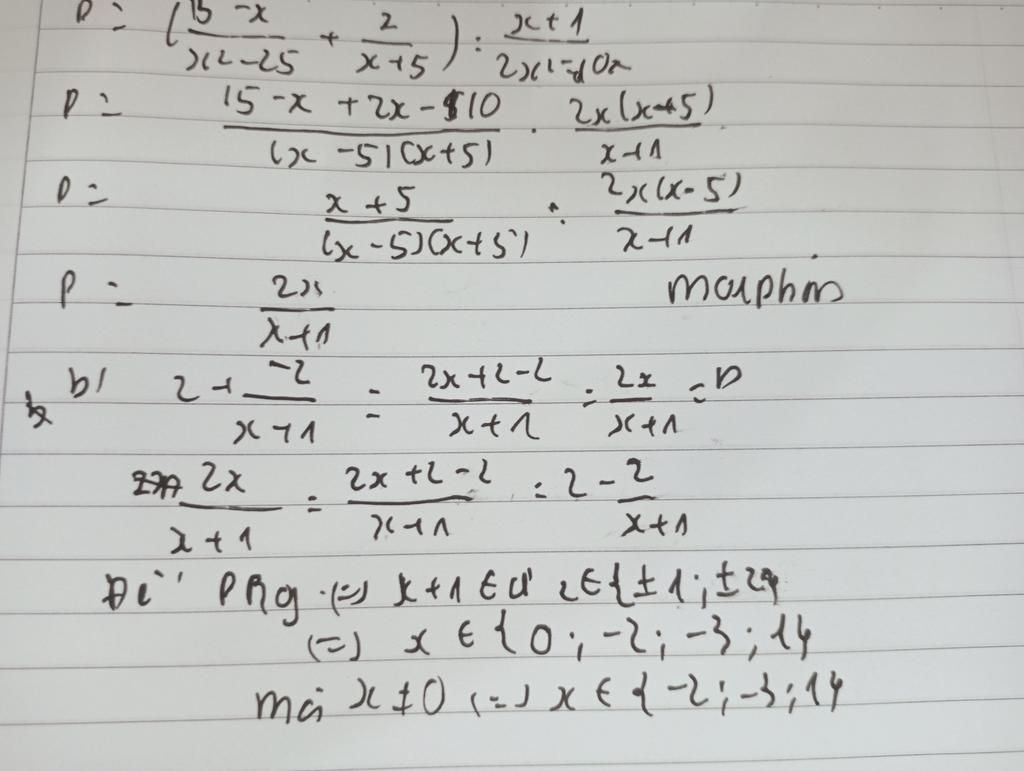 P = (15 - x / x² - 25 + 2 / x + 5) : x + 1 / 2x² - 10x
P = 15 - x + 2x - 10 / (x - 5)(x + 5) . 2x(x + 5) / x + 1
P = x + 5 / (x - 5)(x + 5) . 2x(x - 5) / x + 1
P = 2x / x + 1
b) 2 + -2 / x + 1 = 2x + 2 - 2 / x + 1 = 2x / x + 1 = P
2x / x + 1 = 2x + 2 - 2 / x + 1 = 2 - 2 / x + 1
Để P (=) x + 1 ∈ Ư 2 ∈ {±1; ±2}
(=) x ∈ {0; -2; -3; 1}
mà x ≠ 0 (=) x ∈ {-2; -3; 1}